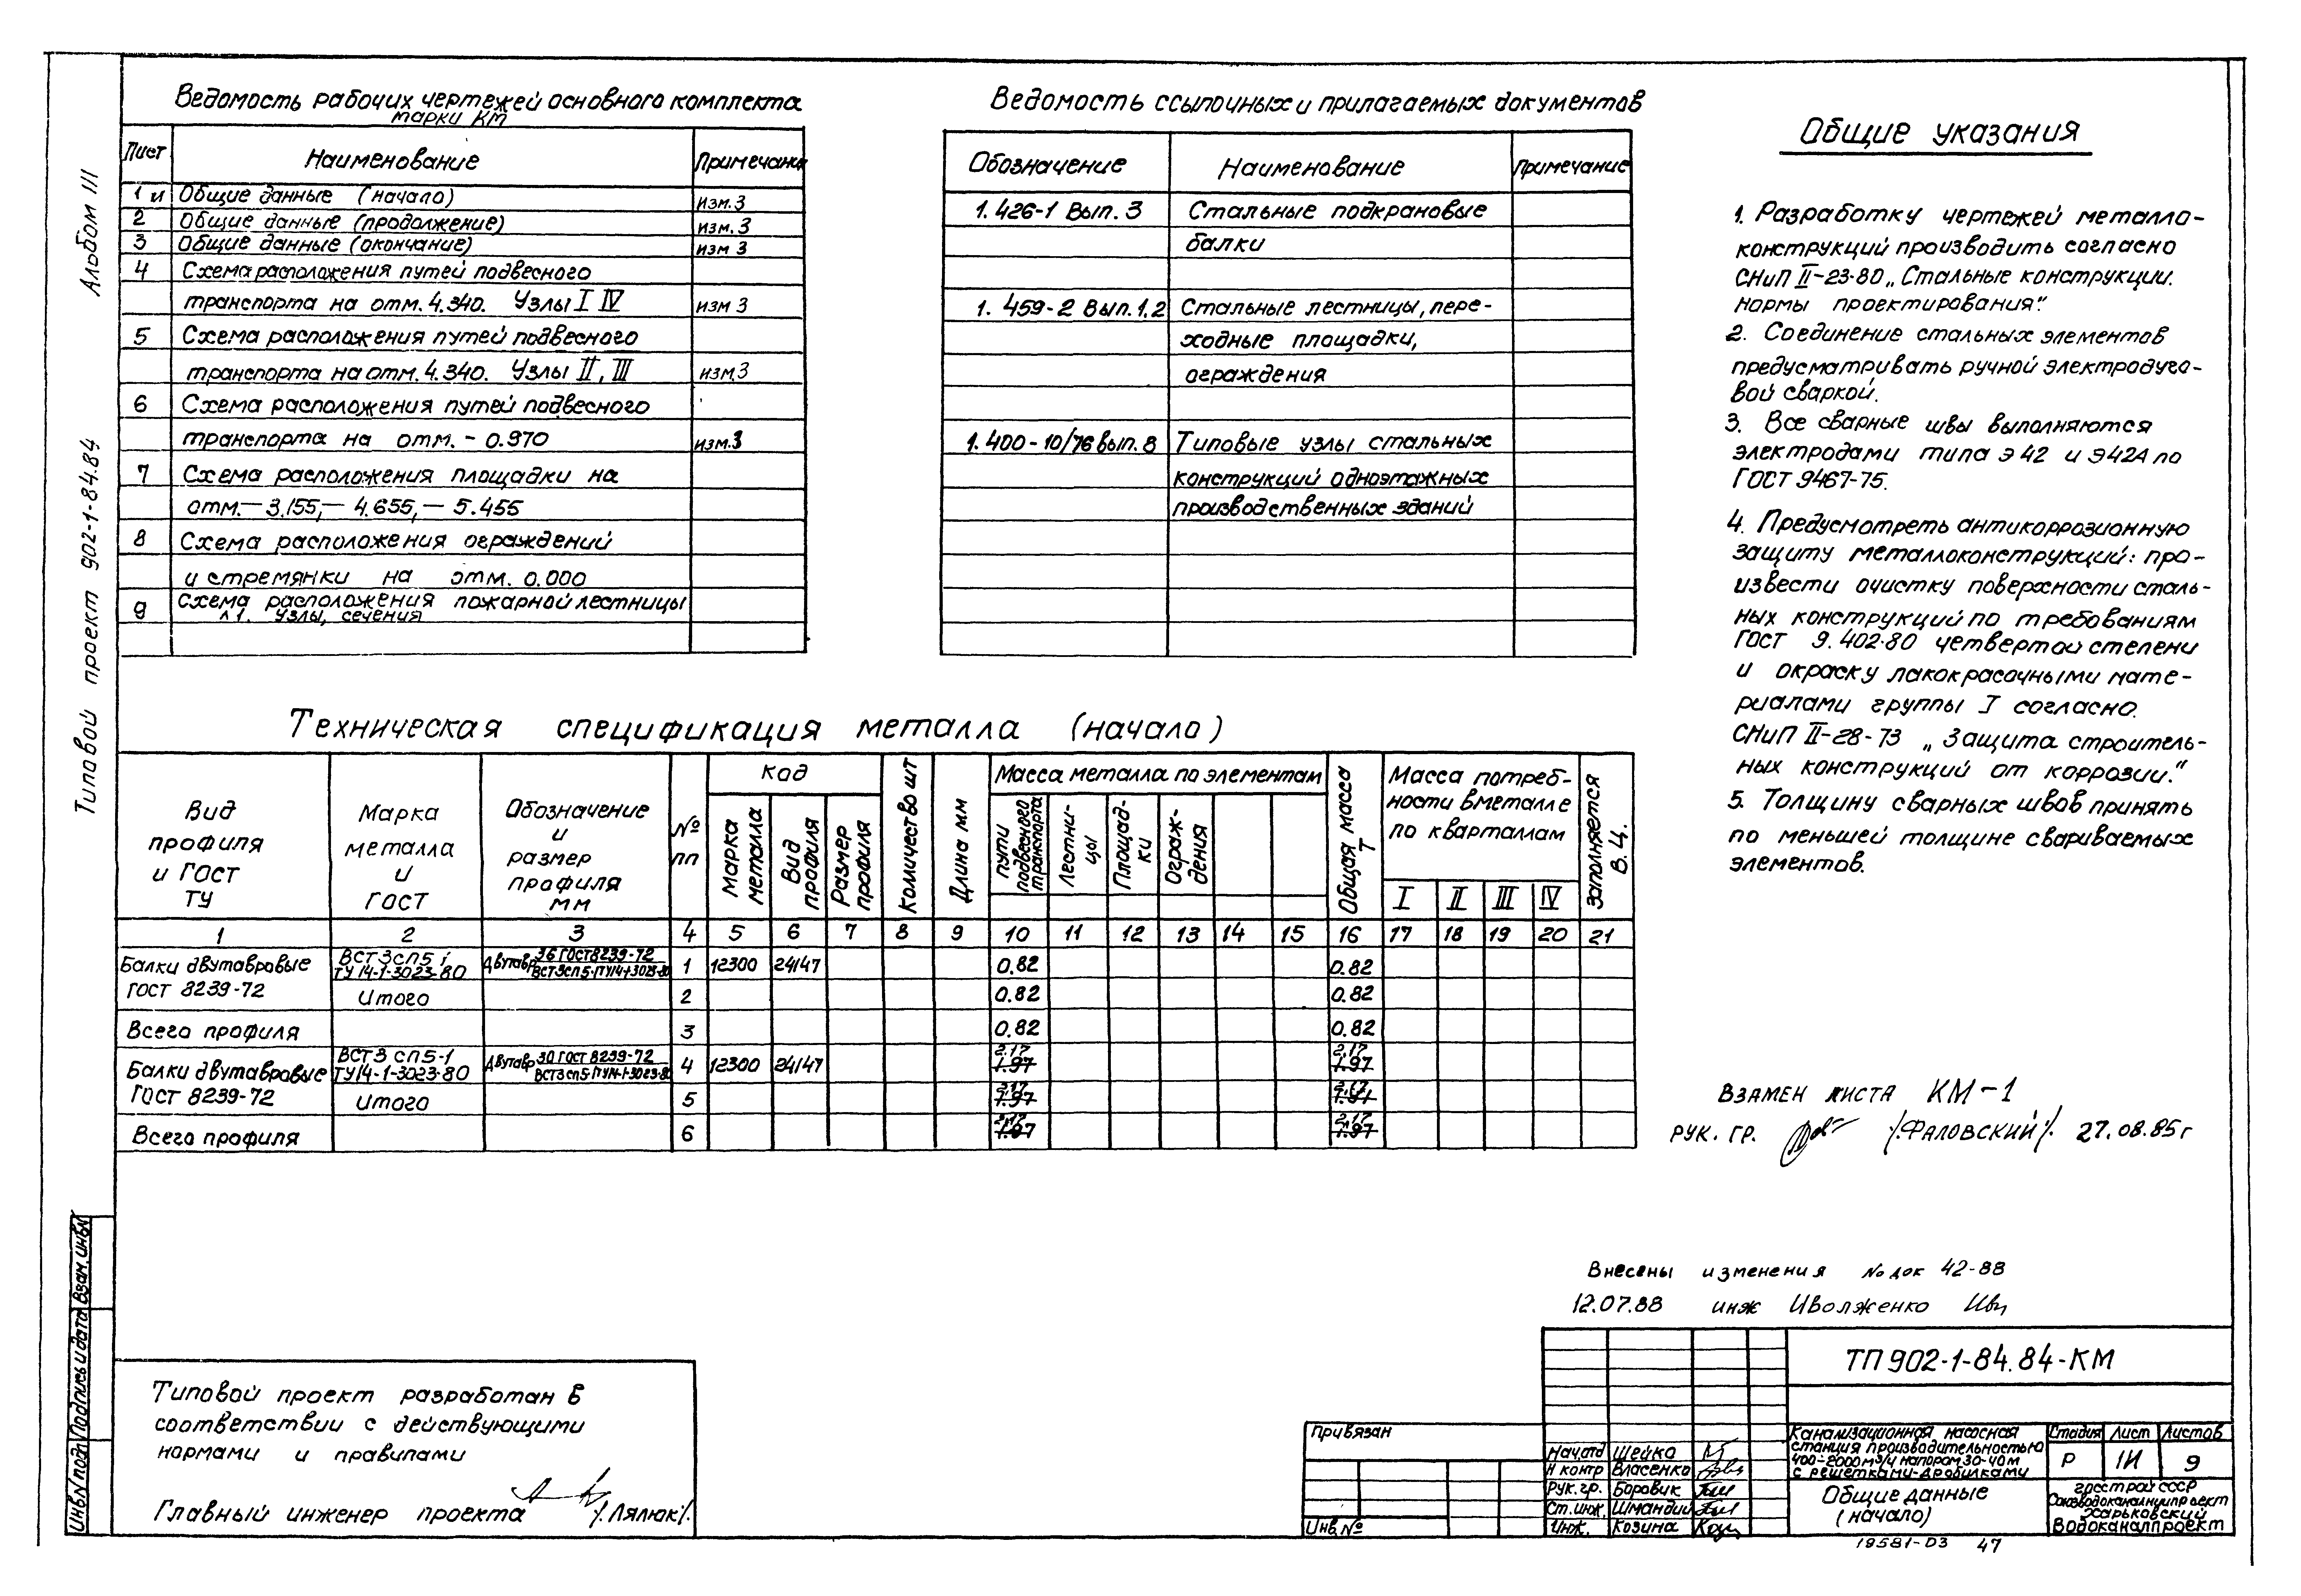 Альбом III
Типовой проект 902-1-84.84
Ведомость рабочих чертежей основного комплекта
марки КМ
Лист Наименование Примечание
1и Общие данные (начало) изм.3
2 Общие данные (продолжение) изм.3
3 Общие данные (окончание) изм 3
4 Схема расположения путей подвесного
транспорта на отм. 4.340. Узлы I IV изм 3
5 Схема расположения путей подвесного
транспорта на отм. 4.340. Узлы II, III изм.3
6 Схема расположения путей подвесного
транспорта на отм. - 0.970 изм.3
7 Схема расположения площадки на
отм.- 3.155,- 4.655,- 5.455
8 Схема расположения ограждений
и стремянки на отм. 0.000
9 Схема расположения пожарной лестницы
л1. Узлы, сечения
Ведомость ссылочных и прилагаемых документов
Обозначение Наименование Примечание
1.426-1 Вып. 3 Стальные подкрановые
балки
1. 459-2 Вып.1.2 Стальные лестницы, пере-
ходные площадки,
ограждения
1.400-10/76 вып. 8 Типовые узлы стальных
конструкций одноэтажных
производственных зданий
Общие указания
1. Разработку чертежей металло-
конструкций производить согласно
СНиП II-23-80 „Стальные конструкции.
Нормы проектирования".
2. Соединение стальных элементов
предусматривать ручной электродуго-
вой сваркой.
3. Все сварные швы выполняются
электродами типа Э42 и Э42А по
ГОСТ 9467-75.
4. Предусмотреть антикоррозионную
защиту металлоконструкций: про-
извести очистку поверхности сталь-
ных конструкций по требованиям
ГОСТ 9.402-80 четвертой степени
и окраску лакокрасочными мате-
риалами группы I согласно.
СНиП II-28-73 „Защита строитель-
ных конструкций от коррозии."
5. Толщину сварных швов принять
по меньшей толщине свариваемых
элементов.
Техническая спецификация металла (начало)
Вид профиля и ГОСТ ТУ
Марка металла и ГОСТ
Обозначение и размер профиля мм
№ пп
Код
Марка металла
Вид профиля
Размер профиля
Количество шт
Длина мм
Масса металла по элементам
Пути подвесного транспорта
Лестни-цы
Площад-ки
Ограж-дения
Общая масса Т
Масса потреб-
ности в металле
по кварталлам
I II III IV
Заполняется В.Ц.
1 2 3 4 5 6 7 8 9 10 11 12 13 14 15 16 17 18 19 20 21
Балки двутавровые ВСТ3сп5 1 Двутавр 36 ГОСТ8239-72 1 12300 24147 0.82 0.82
ТУ14-1-3023-80 ВСТ3сп5-1ТУ14-1-3023-80
ГОСТ 8239-72 Итого 2 0.82 0.82
Всего профиля 3 0.82 0.82
Балки двутавровые ВСТ3 СП5-1 Двутавр 30 ГОСТ 8239-72 4 12300 24147 2.17 1.97 2.17 1.97
ТУ14-1-3023-80 ВСТ3сп5-1ТУ14-1-3023-80
ГОСТ 8239-72 Итого 5 2.17 1.97 2.17 1.97
Всего профиля 6 2.17 1.97 2.17 1.97
Взамен листа КМ-1
Рук. гр. /Фаловский/. 27.08.85г
Внесены изменения № док 42-88
12.07.88 инж Иволженко
Типовой проект разработан в
соответствии с действующими
нормами и правилами
Главный инженер проекта /Лялюк/.
Инв.№подл Подпись и дата Взам.инв№
Привязан
Инв.№
Нач.отд Шейко
Н контр Власенко
Рук.гр. Боровик
Ст.инж. Шмандий
Инж. Козина
ТП 902-1-84.84-КМ
Канализационная насосная
станция производительностью
400-2000м³/ч напором 30-40м
с решетками-дробилками
Стадия Лист Листов
Р 1И 9
Общие данные
(начало)
Госстрой СССР
Союзводоканалниипроект
Харьковский
Водоканалпроект
19581-03 47